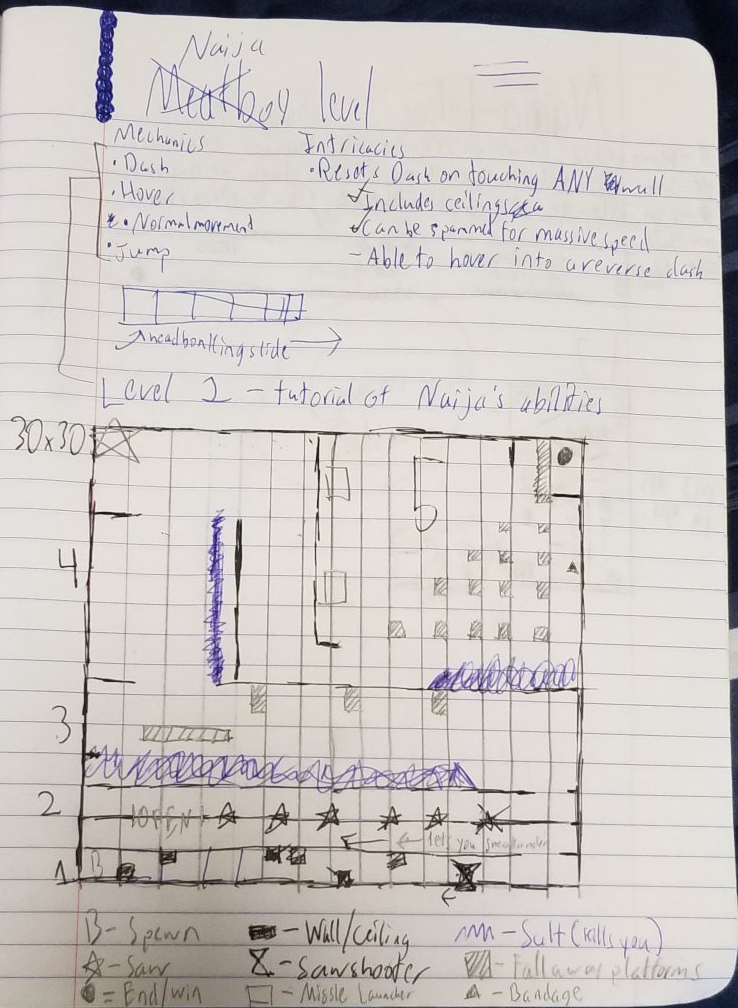 Naija
Meatboy level
Mechanics
• Dash
• Hover
• Normal movement
• Jump
Intricacies
• Resets Dash on touching ANY wall
Includes ceilings
Can be spammed for massive speed
- Able to hover into a reverse dash
headbonking slide
Level 1 - tutorial of Naija's abilities
30x30
5
4
3
2
OPEN
lets you sneak under
1
B
B - Spawn
- Wall/Ceiling
- Salt (kills you)
- Saw
- Sawshooter
- Fallaway platforms
- End/win
- Missle Launcher
- Bandage